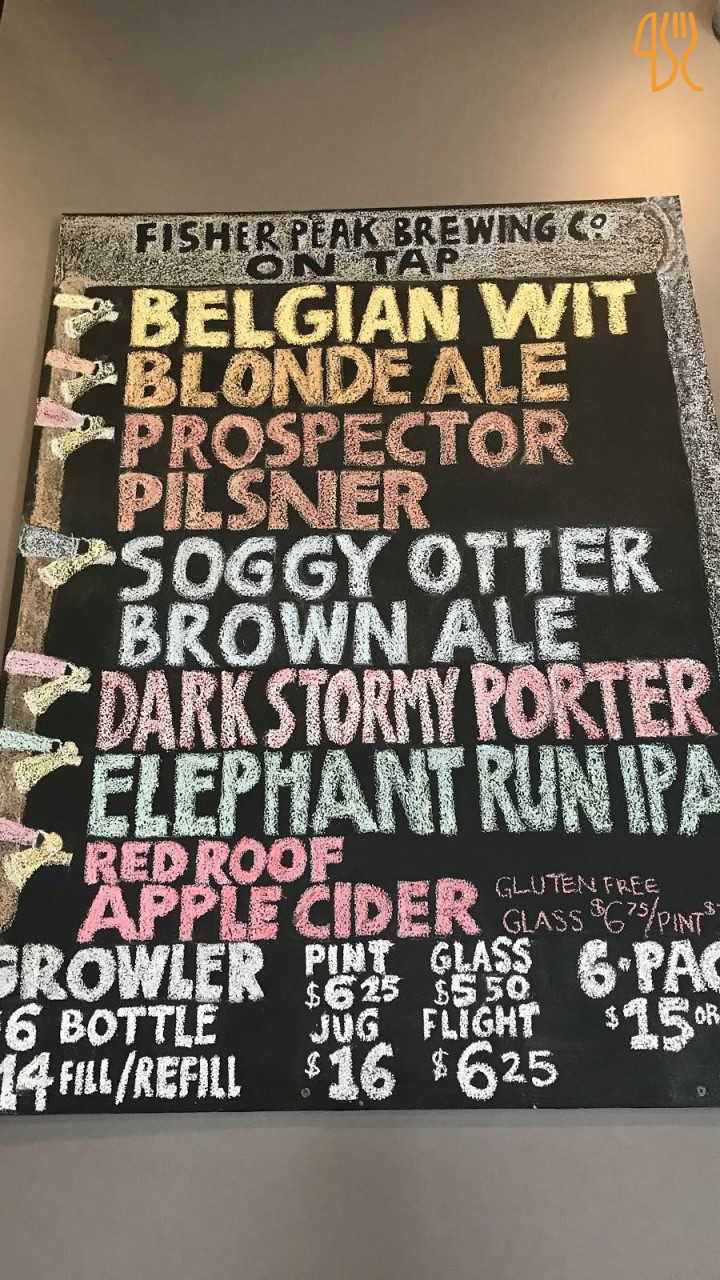 FISHER PEAK BREWING CO.
ON TAP
BELGIAN WIT
BLONDE ALE
PROSPECTOR
PILSNER
SOGGY OTTER
BROWN ALE
DARK STORMY PORTER
ELEPHANT RUN IPA
RED ROOF
APPLE CIDER
GLUTEN FREE
GLASS $6.75/PINT $
GROWLER
$6 BOTTLE
14 FILL/REFILL
PINT
$6.25
JUG
$16
GLASS
$5.50
FLIGHT
$6.25
6-PAC
$15 OR